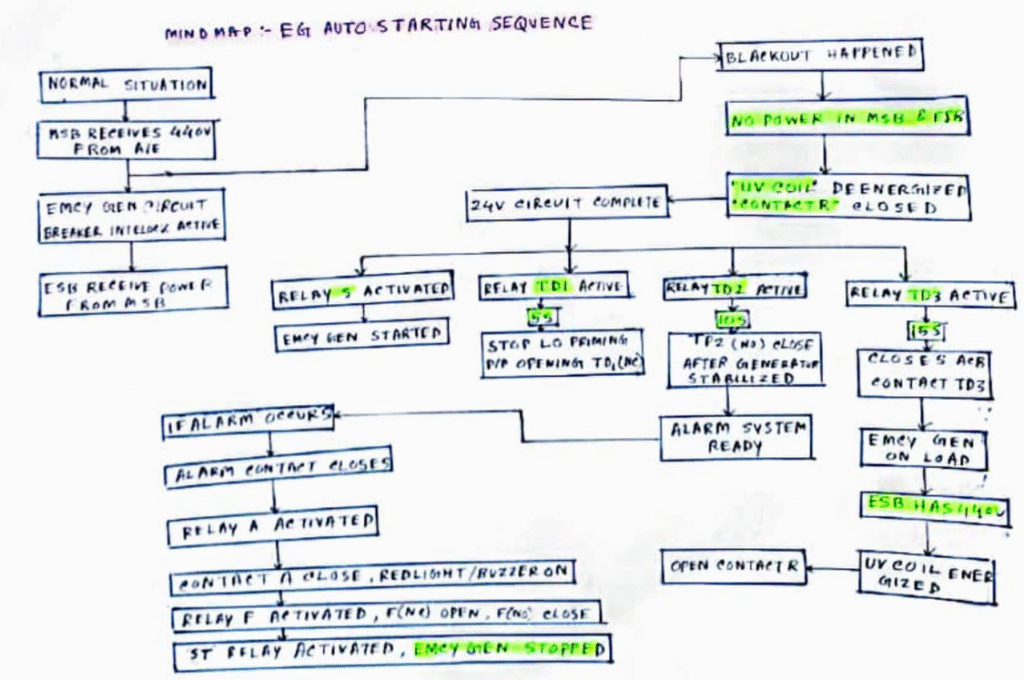 MINDMAP :- EG AUTO STARTING SEQUENCE
NORMAL SITUATION
MSB RECEIVES 440V
FROM A/E
EMCY GEN CIRCUIT
BREAKER INTELOCK ACTIVE
ESB RECEIVE POWER
FROM MSB
BLACKOUT HAPPENED
NO POWER IN MSB & ESB
"UV COIL" DEENERGIZED
"CONTACT R" CLOSED
24V CIRCUIT COMPLETE
RELAY S ACTIVATED
EMCY GEN STARTED
RELAY TD1 ACTIVE
5S
STOP LO PRIMING
P/P OPENING TD1 (NC)
RELAY TD2 ACTIVE
10S
TD2 (NO) CLOSE
AFTER GENERATOR
STABILIZED
ALARM SYSTEM
READY
RELAY TD3 ACTIVE
15S
CLOSES ACB
CONTACT TD3
EMCY GEN
ON LOAD
ESB HAS 440V
UV COIL ENER
GIZED
OPEN CONTACT R
IF ALARM OCCURS
ALARM CONTACT CLOSES
RELAY A ACTIVATED
CONTACT A CLOSE, REDLIGHT/BUZZER ON
RELAY F ACTIVATED, F(NC) OPEN, F(NO) CLOSE
ST RELAY ACTIVATED, EMCY GEN STOPPED